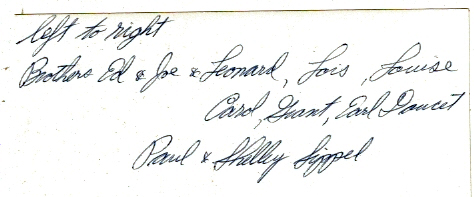 left to right
Brothers Ed & Joe & Leonard, Lois, Louise
Carol, Grant, Earl Doucet
Paul & Shelly Sippel